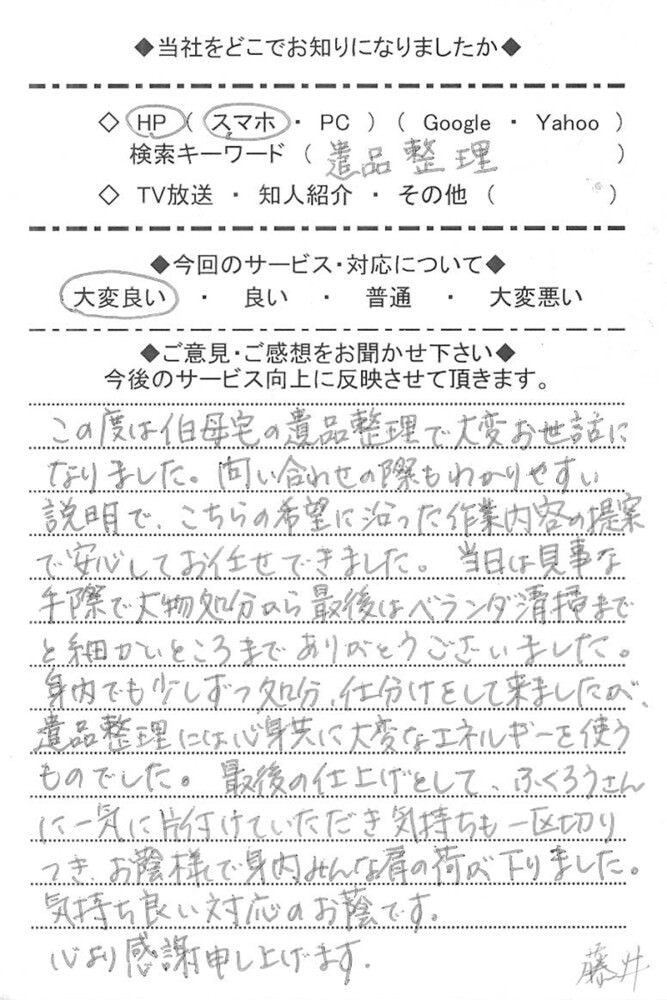 ◆当社をどこでお知りになりましたか◆
◇ HP ( スマホ ・ PC ) ( Google ・ Yahoo )
検索キーワード ( 遺品整理 )
◇ TV放送 ・ 知人紹介 ・ その他 ( )
◆今回のサービス・対応について◆
大変良い ・ 良い ・ 普通 ・ 大変悪い
◆ご意見・ご感想をお聞かせ下さい◆
今後のサービス向上に反映させて頂きます。
この度は伯母宅の遺品整理で大変お世話に
なりました。問い合わせの際もわかりやすい
説明で、こちらの希望に沿った作業内容の提案
で安心してお任せできました。当日は見事な
手際で大物処分から最後はベランダ清掃まで
と細かいところまでありがとうございました。
身内でも少しずつ処分、仕分けをして来ましたが、
遺品整理には心身共に大変なエネルギーを使う
ものでした。最後の仕上げとして、ふくろうさん
に一気に片付けていただき気持ちも一区切り
つき、お蔭様で身内みんな肩の荷が下りました。
気持ち良い対応のお蔭です。
心より感謝申し上げます.
藤井